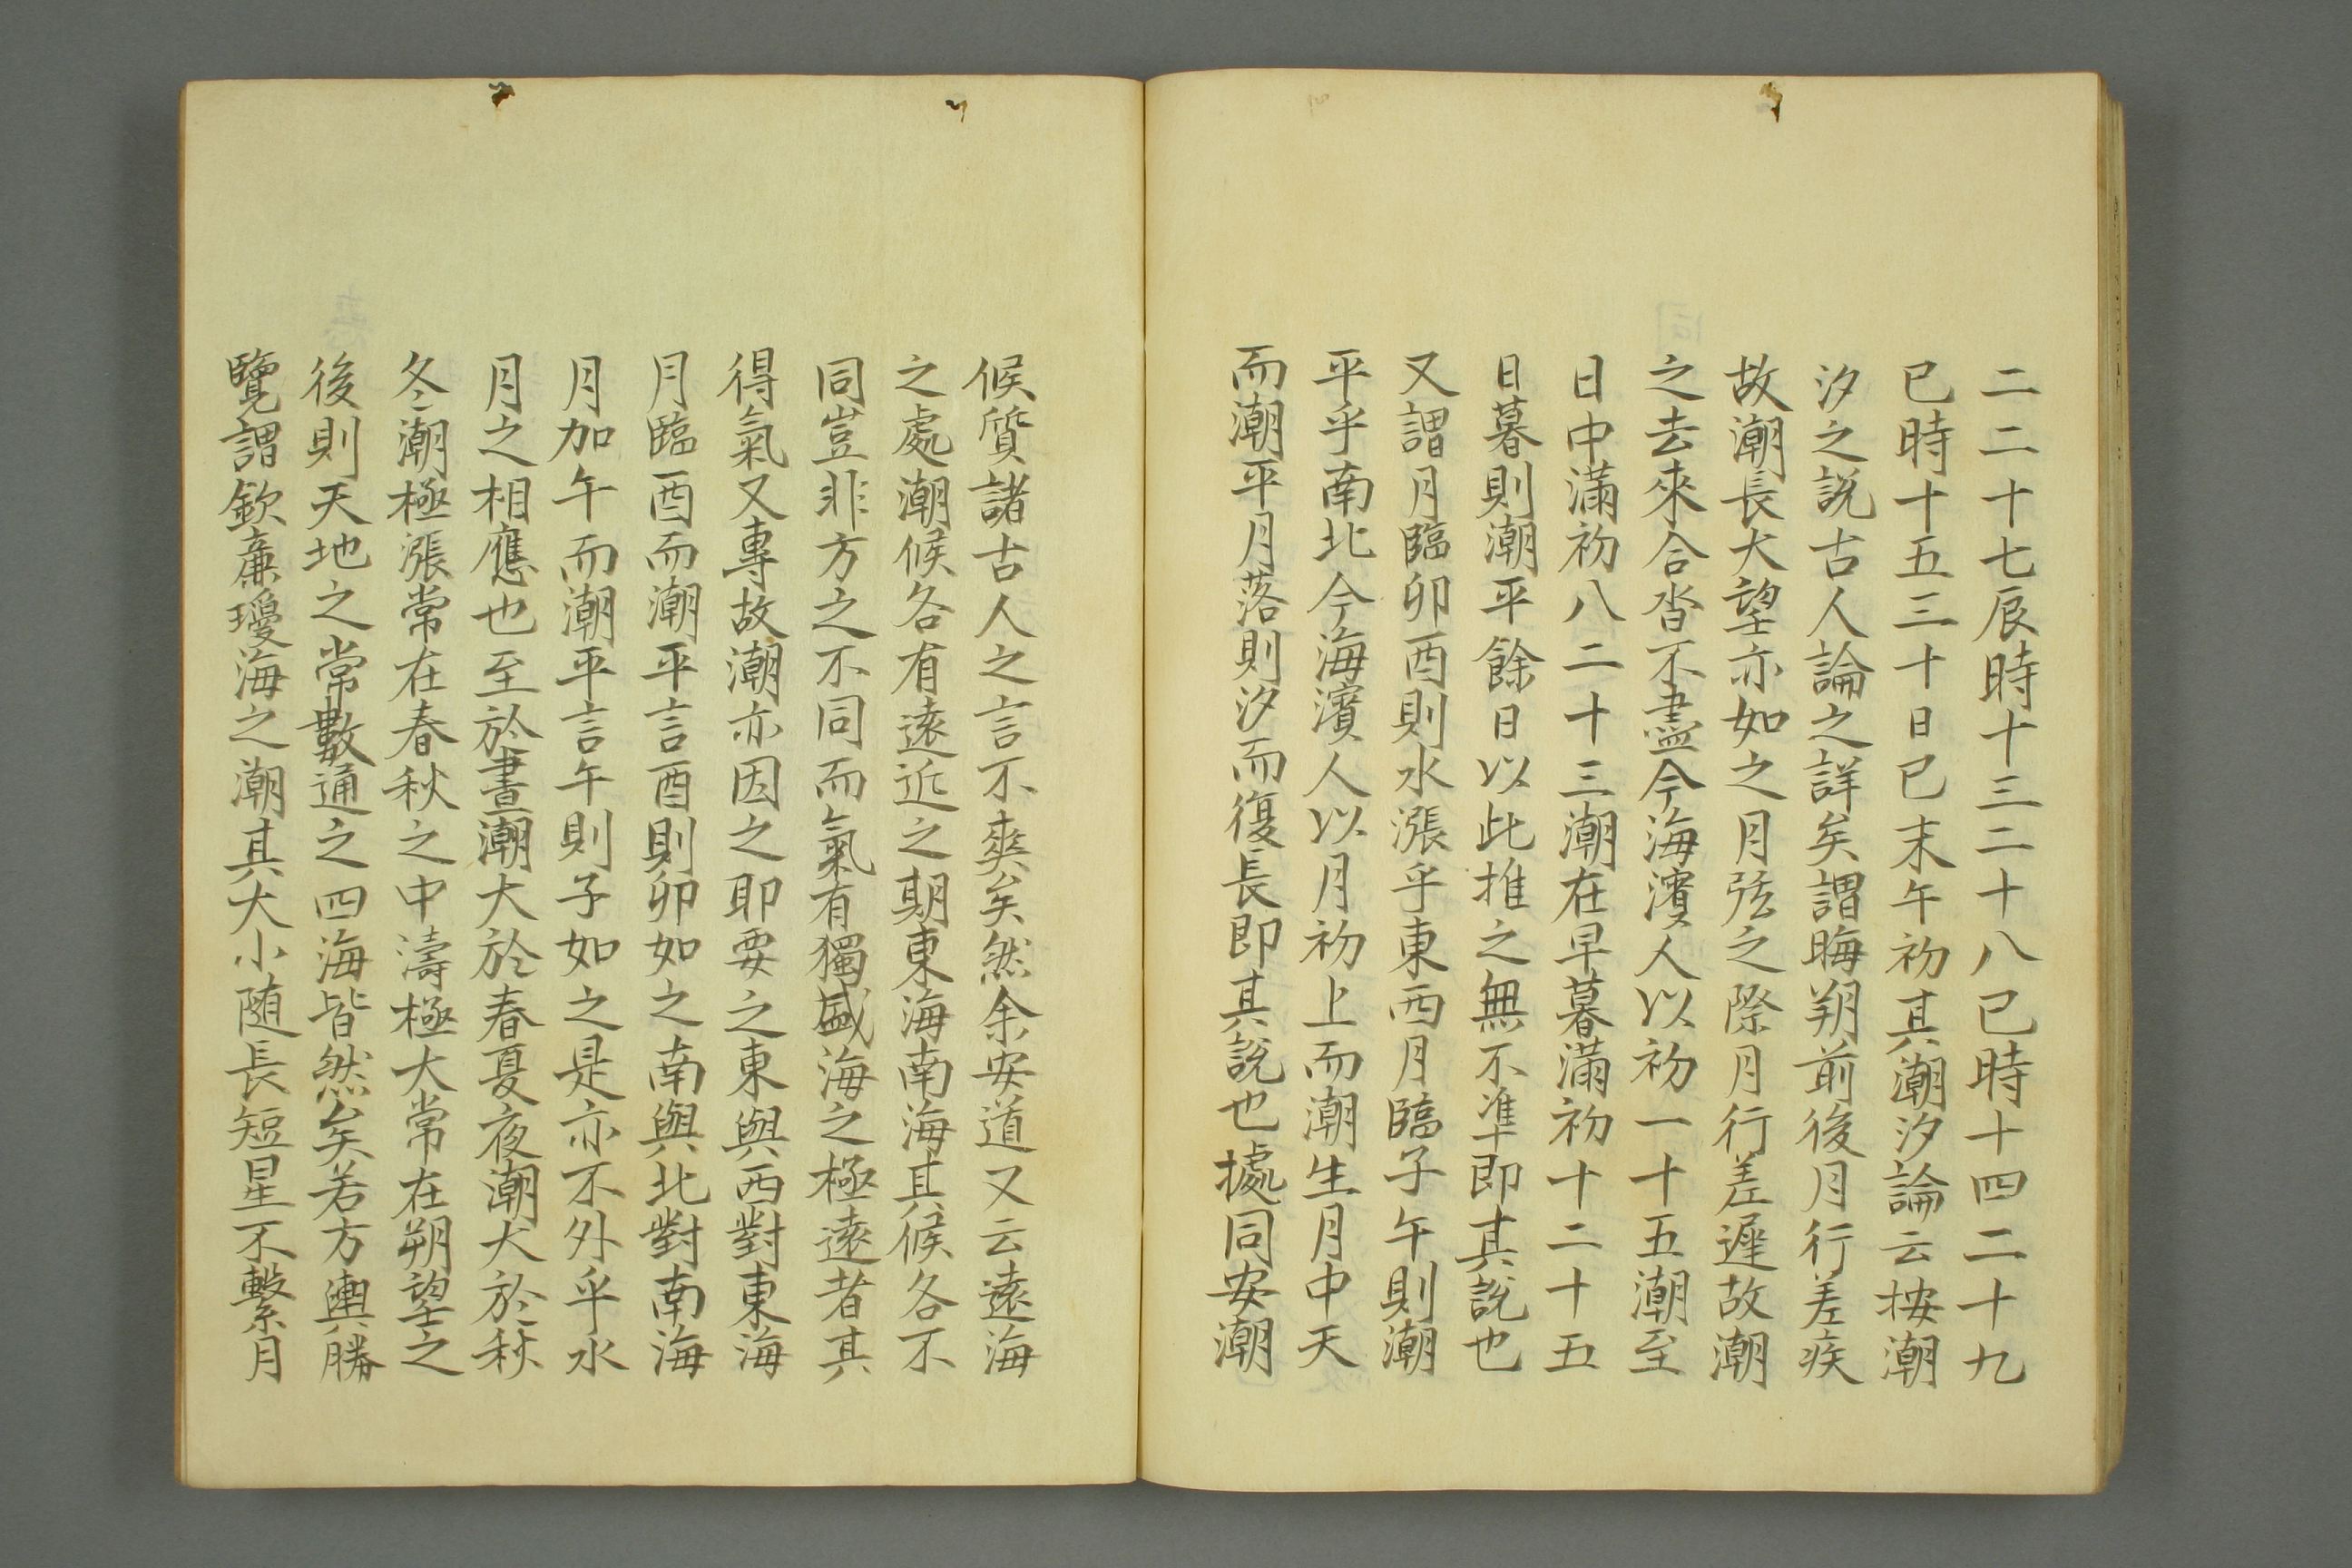 二二十七辰時十三二十八巳時十四二十九
巳時十五三十日巳末午初其潮汐論云按潮
汐之說古人論之詳矣謂晦朔前後月行差疾
故潮長大望亦如之月弦之際月行差遲故潮
之去來合沓不盡今海濱人以初一十五潮至
日中滿初八二十三潮在早暮滿初十二十五
日暮則潮平餘日以此推之無不準即其說也
又謂月臨卯酉則水漲乎東西月臨子午則潮
平乎南北今海濱人以月初上而潮生月中天
而潮平月落則汐而復長即其說也據同安潮
候質諸古人之言不爽矣然余安道又云遠海
之處潮候各有遠近之期東海南海其候各不
同豈非方之不同而氣有獨盛海之極遠者其
得氣又專故潮亦因之耶要之東與西對東海
月臨酉而潮平言酉則卯如之南與北對南海
月加午而潮平言午則子如之是亦不外乎水
月之相應也至於晝潮大於春夏夜潮大於秋
冬潮極漲常在春秋之中濤極大常在朔望之
後則天地之常數通之四海皆然矣若方輿勝
覽謂欽廉瓊海之潮其大小随長短星不繫月